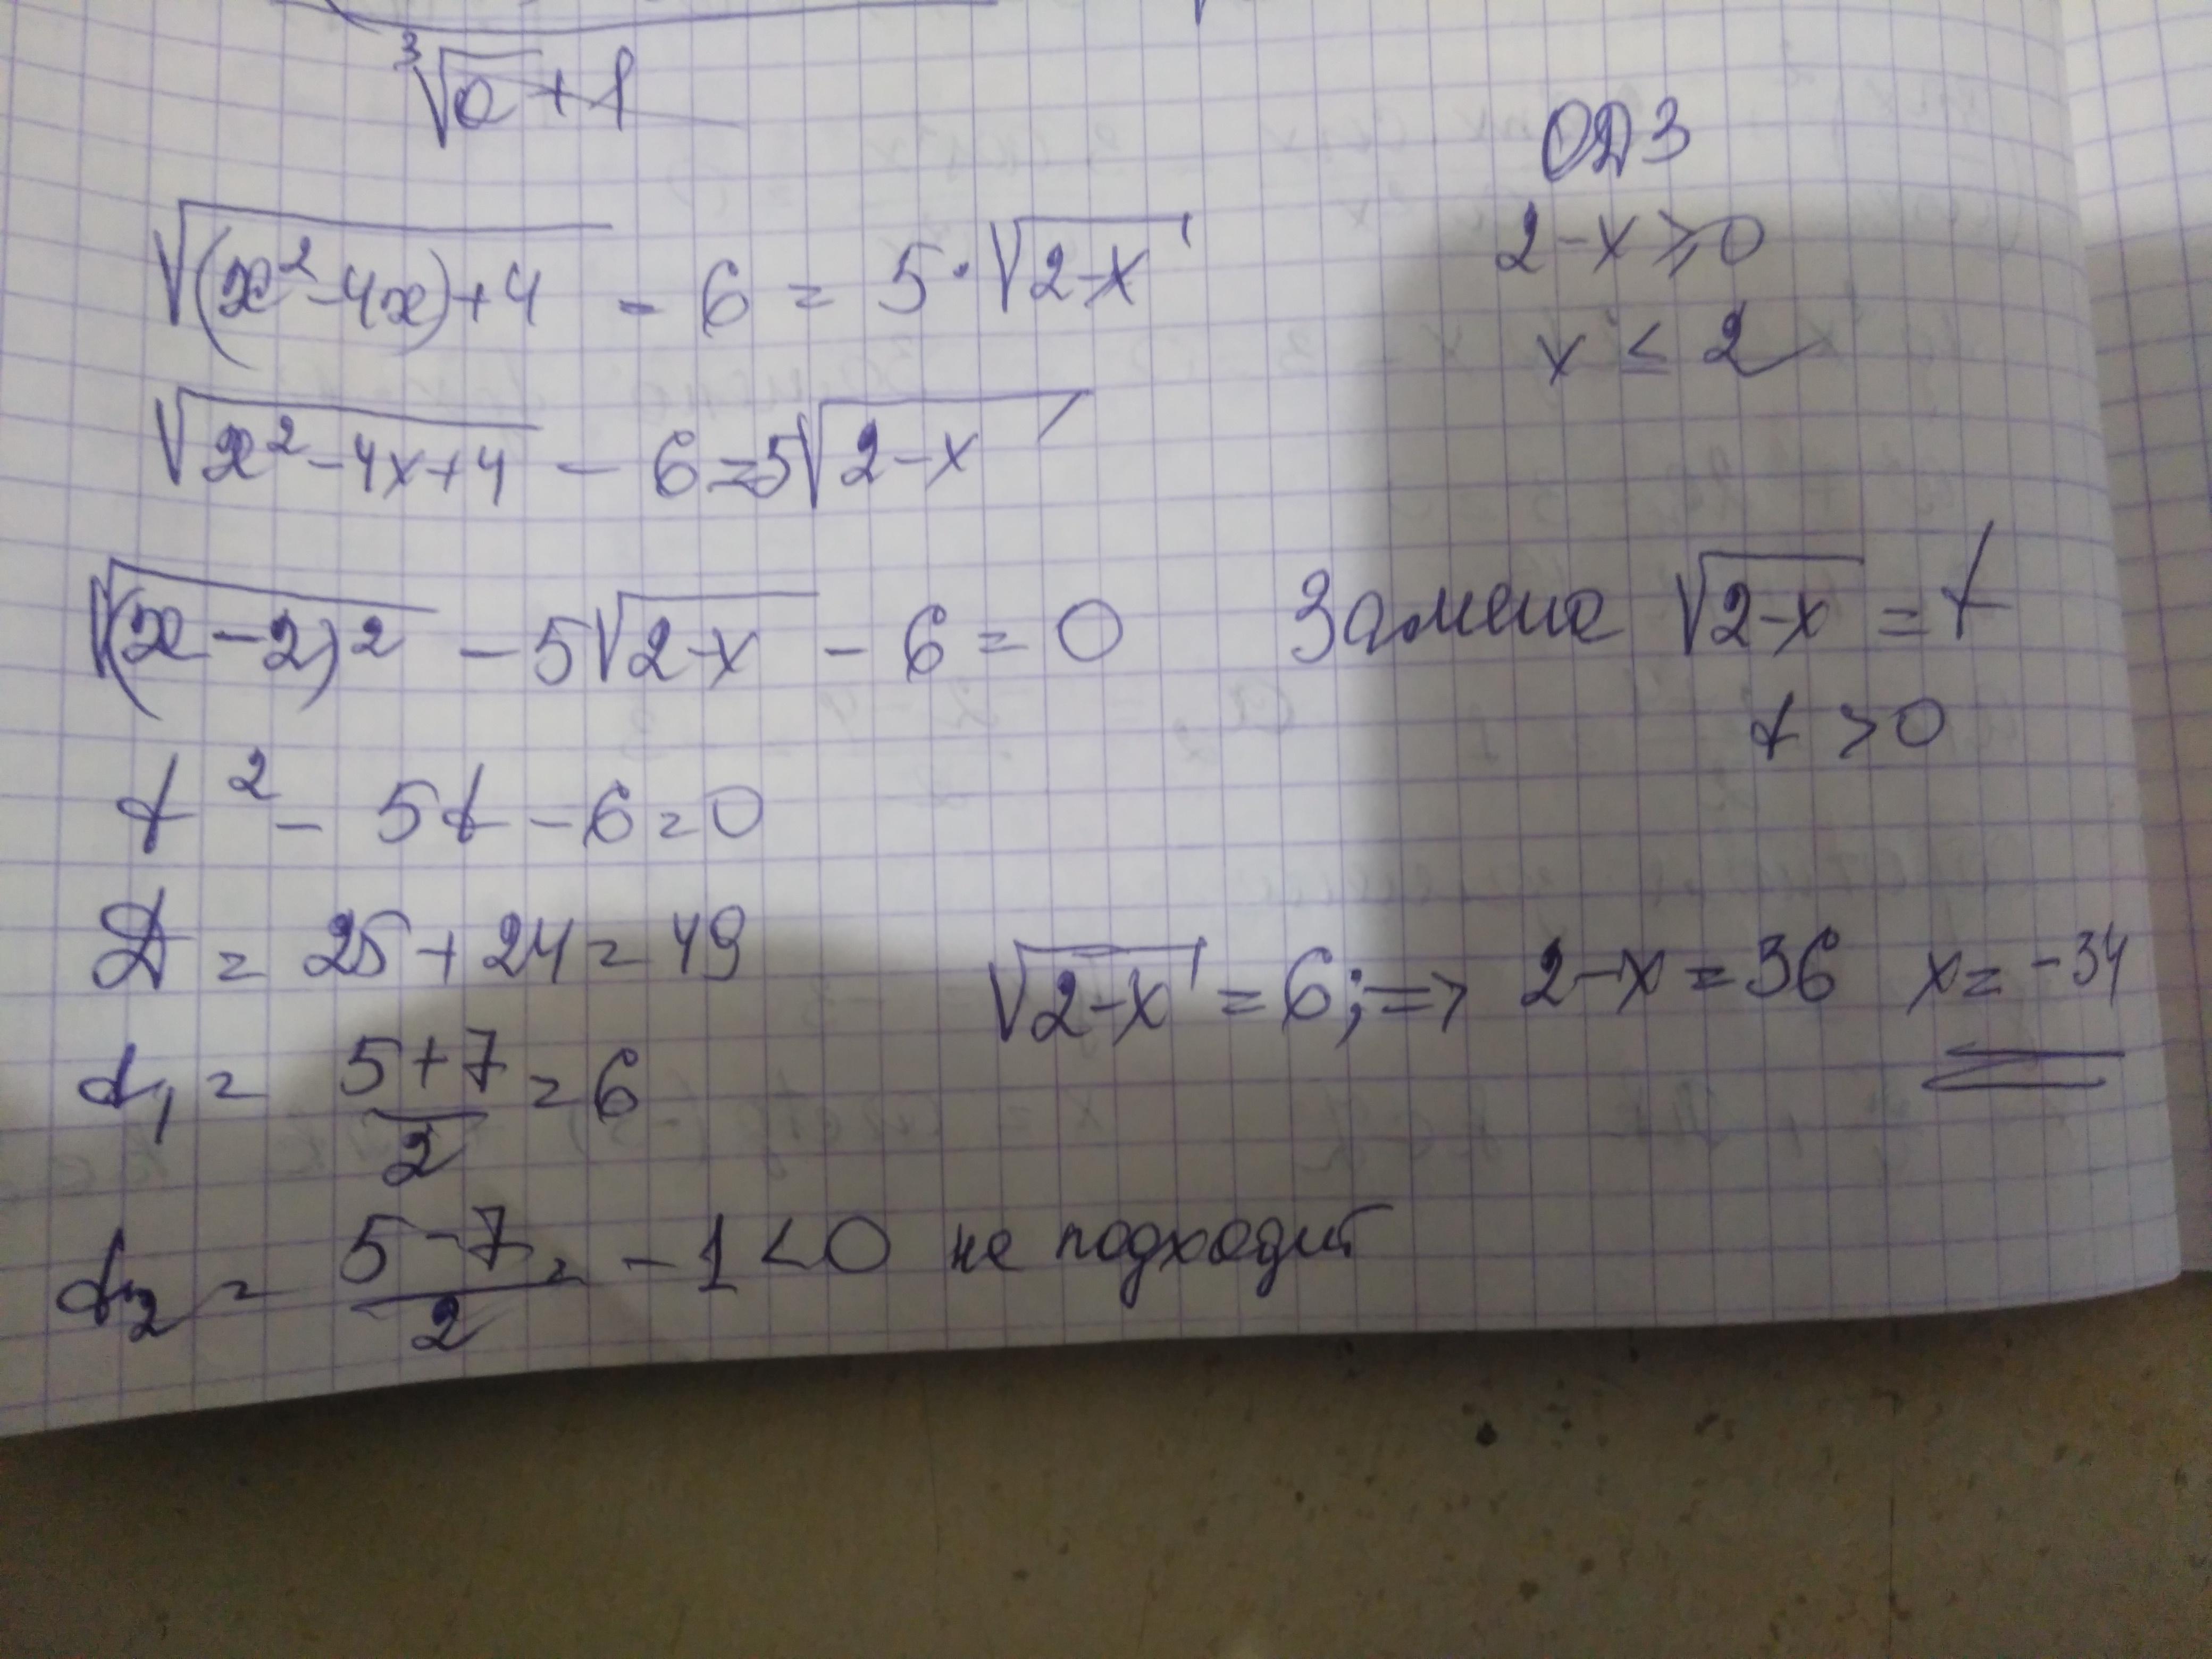 ∛a + 1
ОДЗ
√(x² - 4x) + 4 - 6 = 5 · √2-x
2 - x ≥ 0
x ≤ 2
√x² - 4x + 4 - 6 = 5√2-x
√(x - 2)² - 5√2-x - 6 = 0
Замена √2-x = t
t > 0
t² - 5t - 6 = 0
D = 25 + 24 = 49
√2-x = 6; => 2 - x = 36 x = -34
t₁ = 5+7/2 = 6
t₂ = 5-7/2 = -1 < 0 не подходит